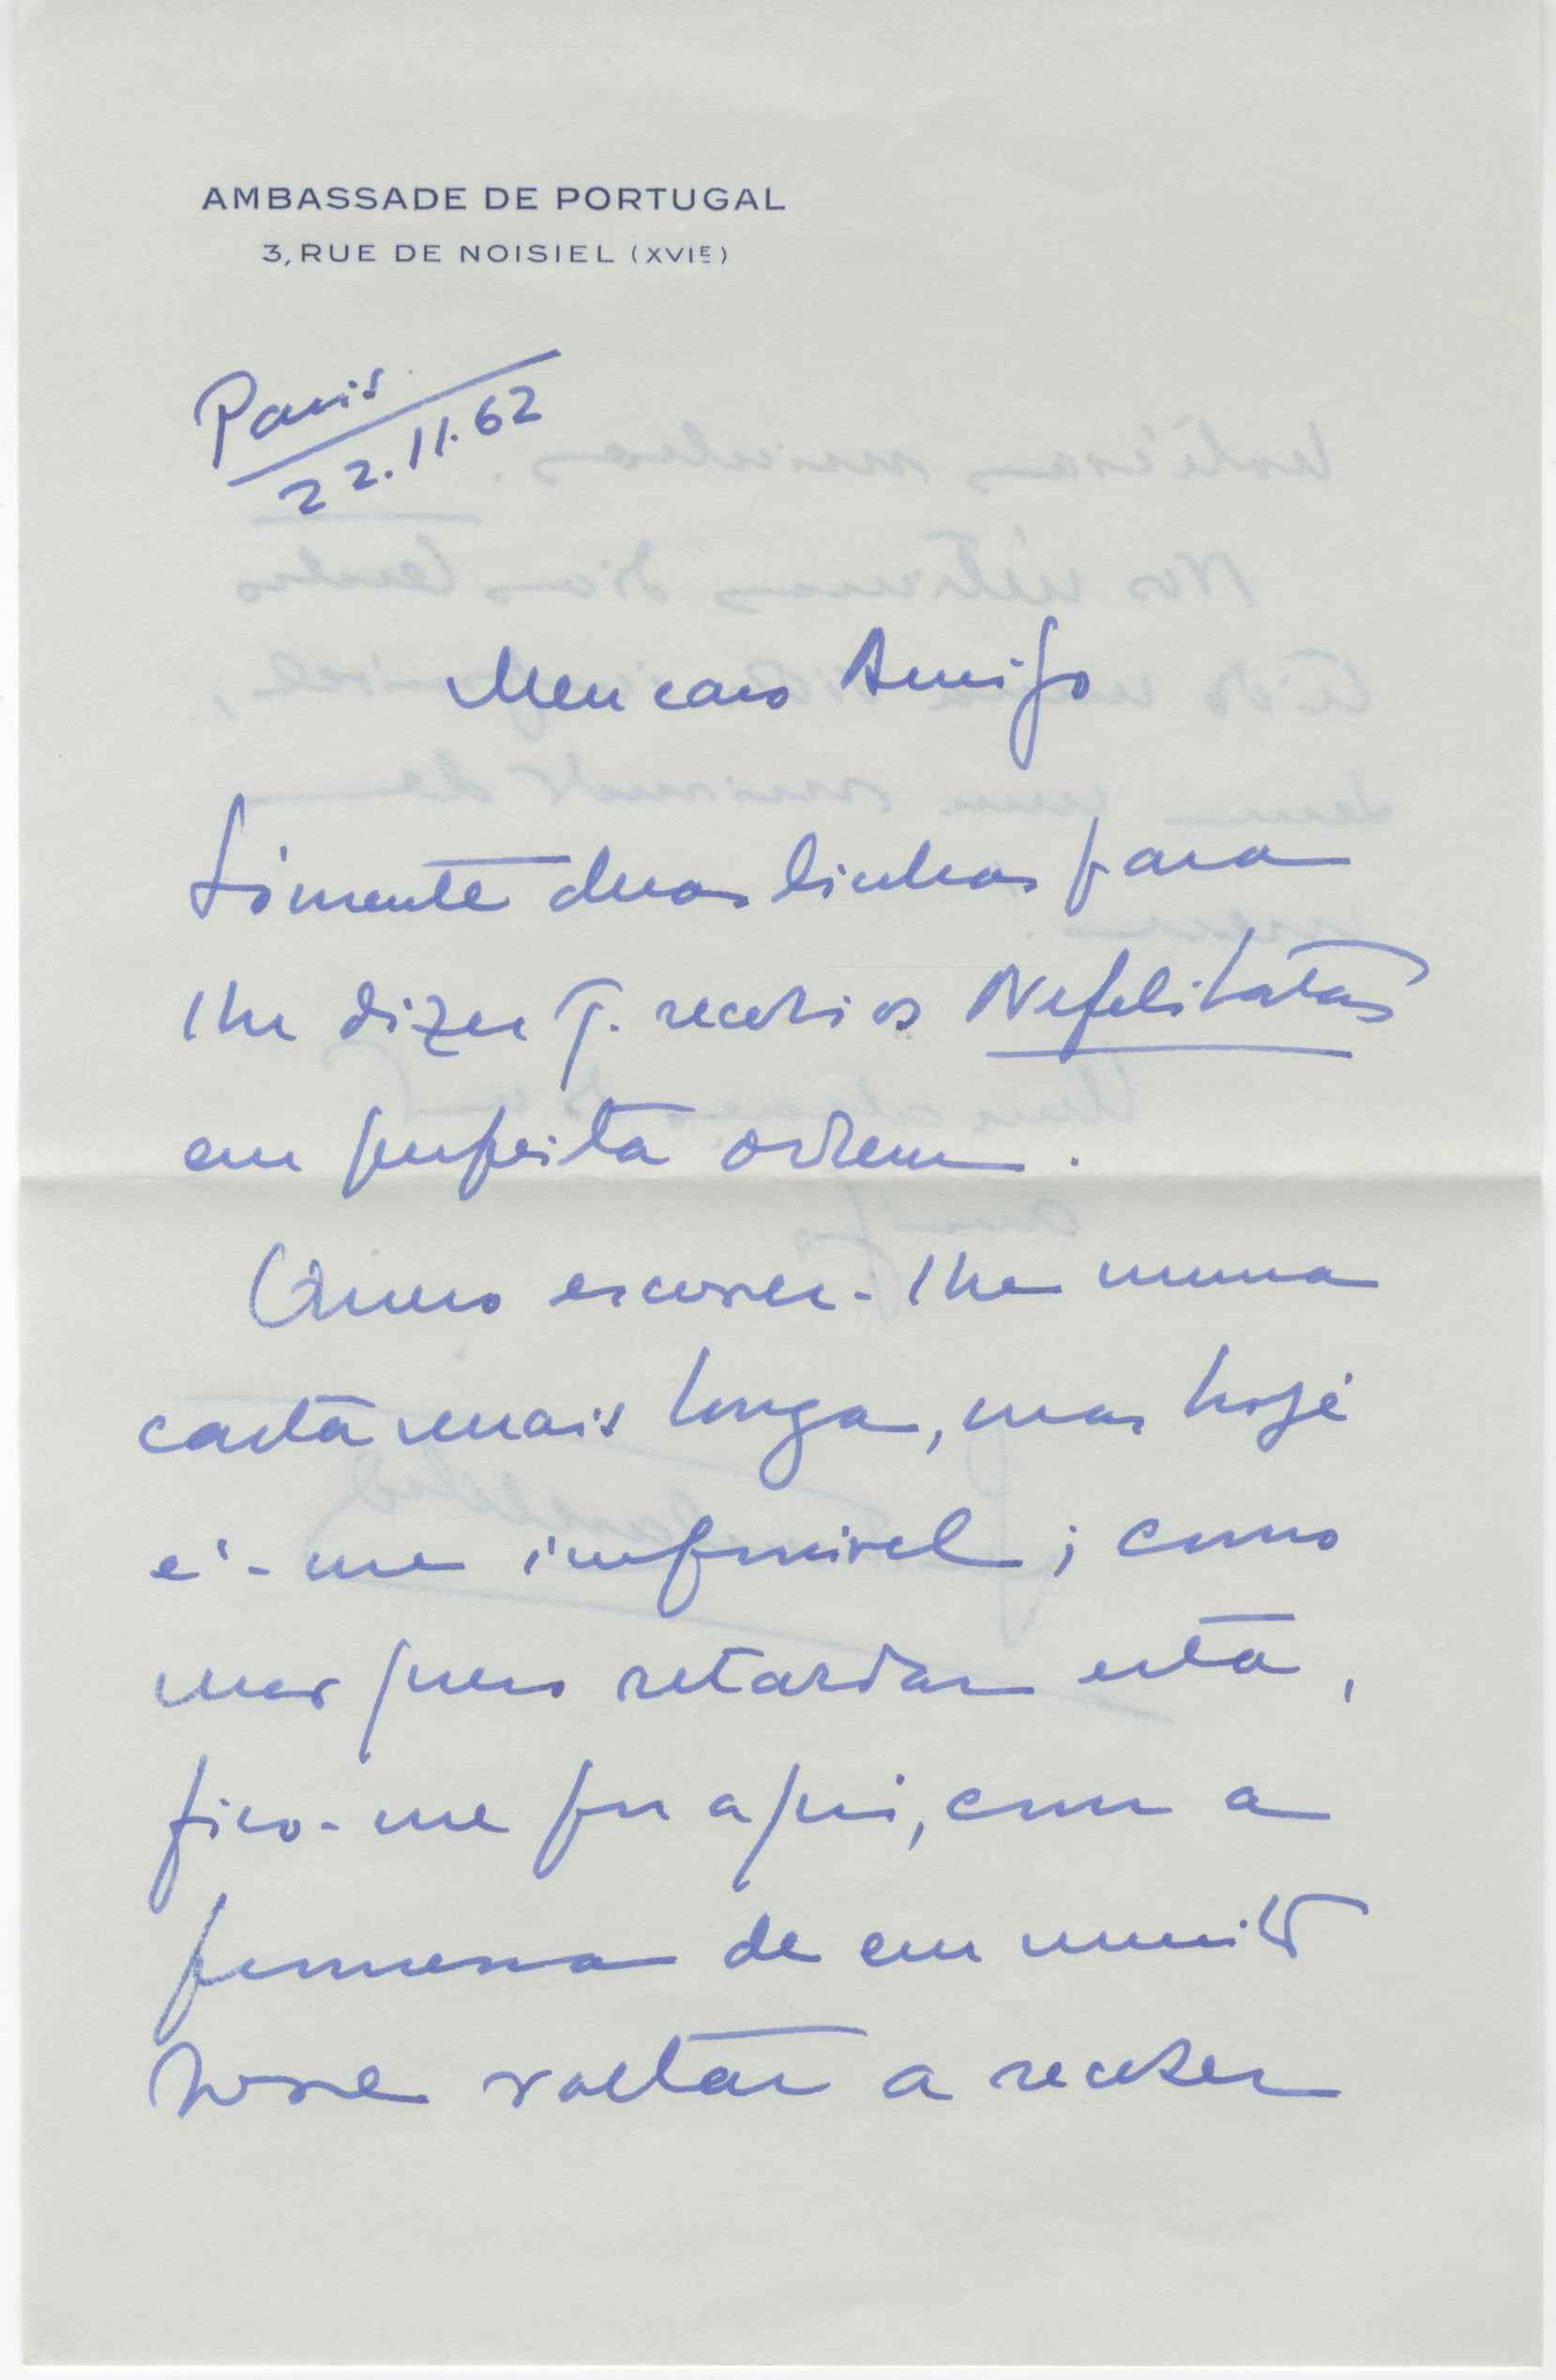 AMBASSADE DE PORTUGAL
3, RUE DE NOISIEL (XVIE)
Paris
22.11.62
Meu caro Amigo
Sòmente duas linhas para
lhe dizer q. recebi os Nefelibatas
em perfeita ordem.
Quero escrever-lhe numa
carta mais longa, mas hoje
é-me impossivel; como
não quero retardar esta,
fico-me por aqui, com a
promessa de em muito
breve voltar a receber